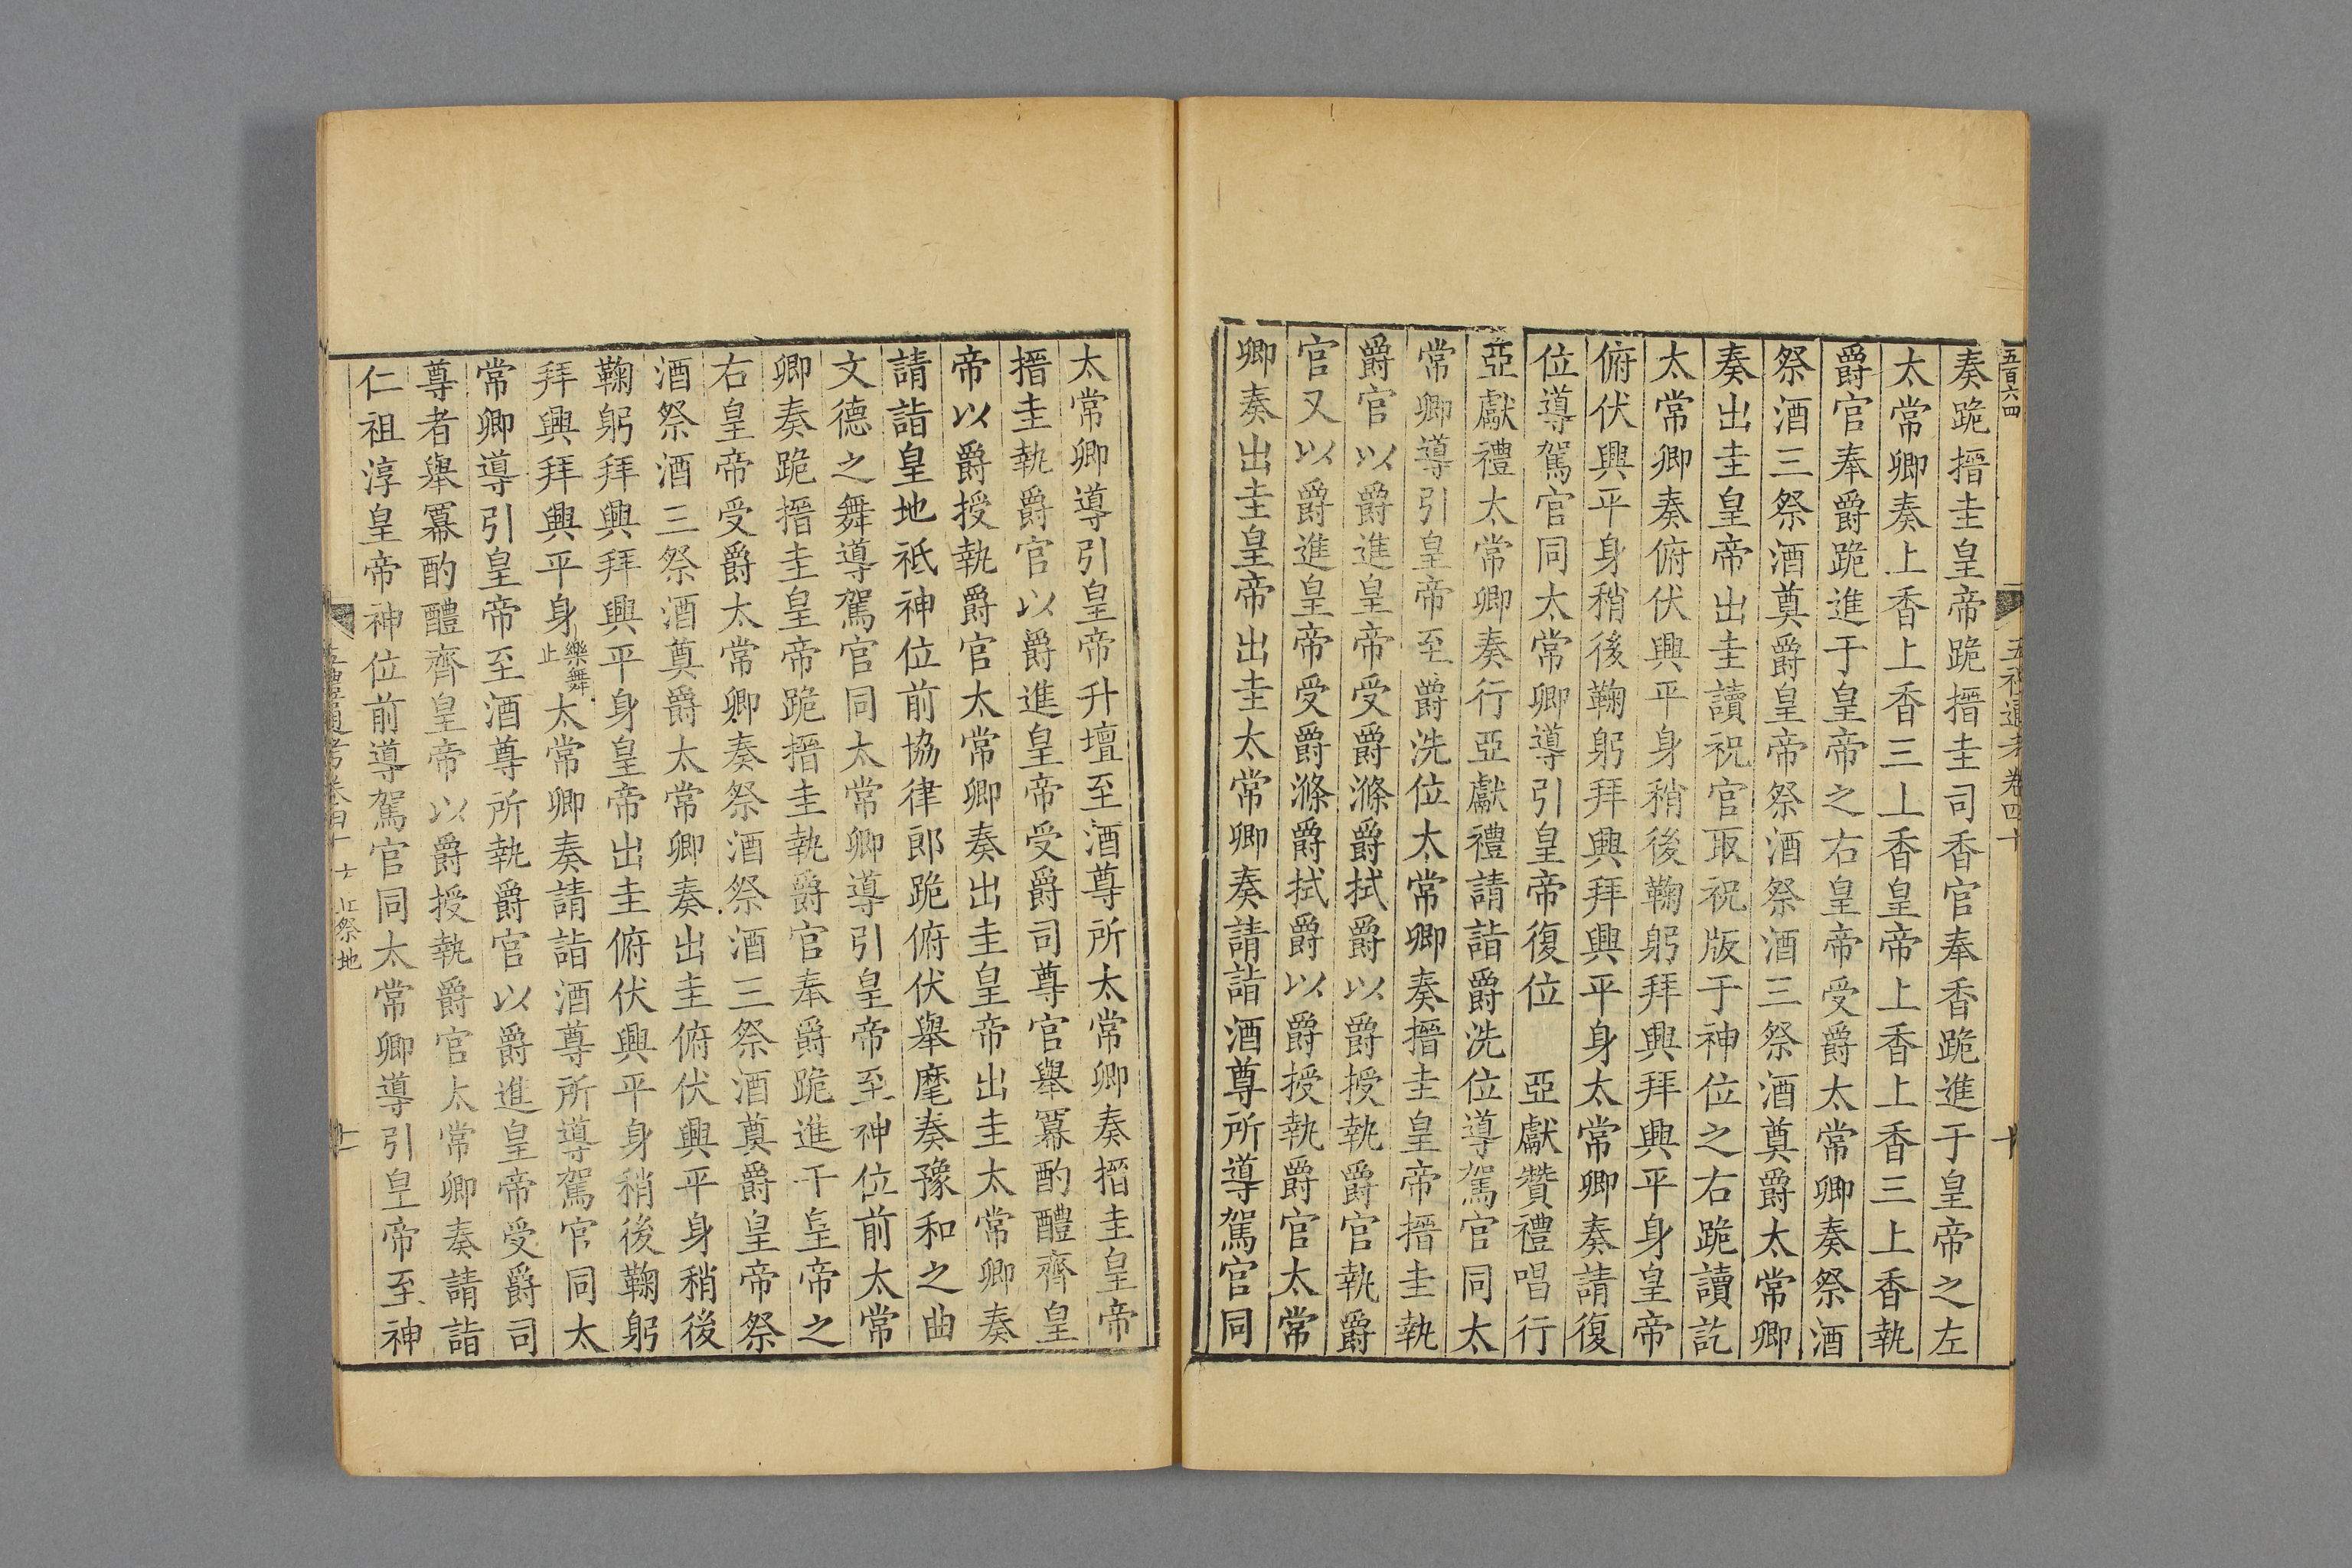 五百六四
五禮通考卷四十
十
奏跪搢圭皇帝跪搢圭司香官奉香跪進于皇帝之左
太常卿奏上香上香三上香皇帝上香上香三上香執
爵官奉爵跪進于皇帝之右皇帝受爵太常卿奏祭酒
祭酒三祭酒奠爵皇帝祭酒祭酒三祭酒奠爵太常卿
奏出圭皇帝出圭讀祝官取祝版于神位之右跪讀訖
太常卿奏俯伏興平身稍後鞠躬拜興拜興平身皇帝
俯伏興平身稍後鞠躬拜興拜興平身太常卿奏請復
位導駕官同太常卿導引皇帝復位　亞獻贊禮唱行
亞獻禮太常卿奏行亞獻禮請詣爵洗位導駕官同太
常卿導引皇帝至爵洗位太常卿奏搢圭皇帝搢圭執
爵官以爵進皇帝受爵滌爵拭爵以爵授執爵官執爵
官又以爵進皇帝受爵滌爵拭爵以爵授執爵官太常
卿奏出圭皇帝出圭太常卿奏請詣酒尊所導駕官同
太常卿導引皇帝升壇至酒尊所太常卿奏搢圭皇帝
搢圭執爵官以爵進皇帝受爵司尊官舉冪酌醴齊皇
帝以爵授執爵官太常卿奏出圭皇帝出圭太常卿奏
請詣皇地祇神位前協律郎跪俯伏舉麾奏豫和之曲
文德之舞導駕官同太常卿導引皇帝至神位前太常
卿奏跪搢圭皇帝跪搢圭執爵官奉爵跪進于皇帝之
右皇帝受爵太常卿奏祭酒祭酒三祭酒奠爵皇帝祭
酒祭酒三祭酒奠爵太常卿奏出圭俯伏興平身稍後
鞠躬拜興拜興平身皇帝出圭俯伏興平身稍後鞠躬
拜興拜興平身樂舞止太常卿奏請詣酒尊所導駕官同太
常卿導引皇帝至酒尊所執爵官以爵進皇帝受爵司
尊者舉冪酌醴齊皇帝以爵授執爵官太常卿奏請詣
仁祖淳皇帝神位前導駕官同太常卿導引皇帝至神
祭地